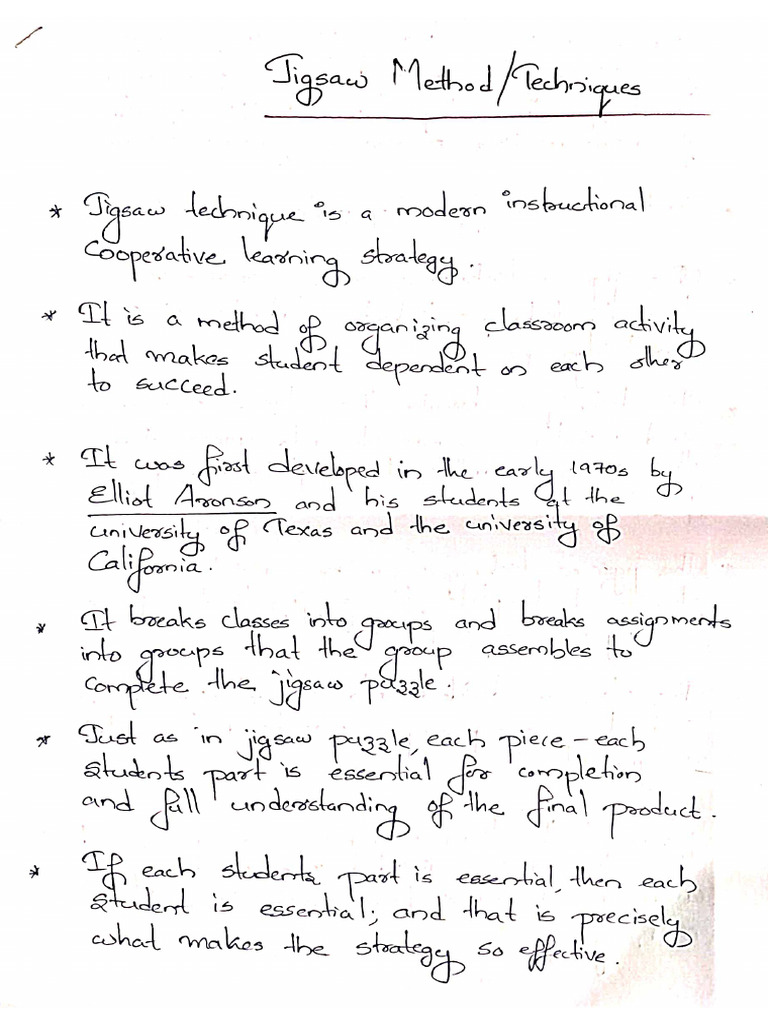 Jigsaw Method/Techniques
* Jigsaw technique is a modern instructional
Cooperative learning strategy.
* It is a method of organizing classroom activity
that makes student dependent on each other
to succeed.
* It was first developed in the early 1970s by
Elliot Aronson and his students at the
university of Texas and the university of
California.
* It breaks classes into groups and breaks assignments
into groups that the group assembles to
complete the jigsaw puzzle.
* Just as in jigsaw puzzle, each piece - each
students part is essential for completion
and full understanding of the final product.
* If each students part is essential, then each
student is essential; and that is precisely
what makes the strategy so effective.